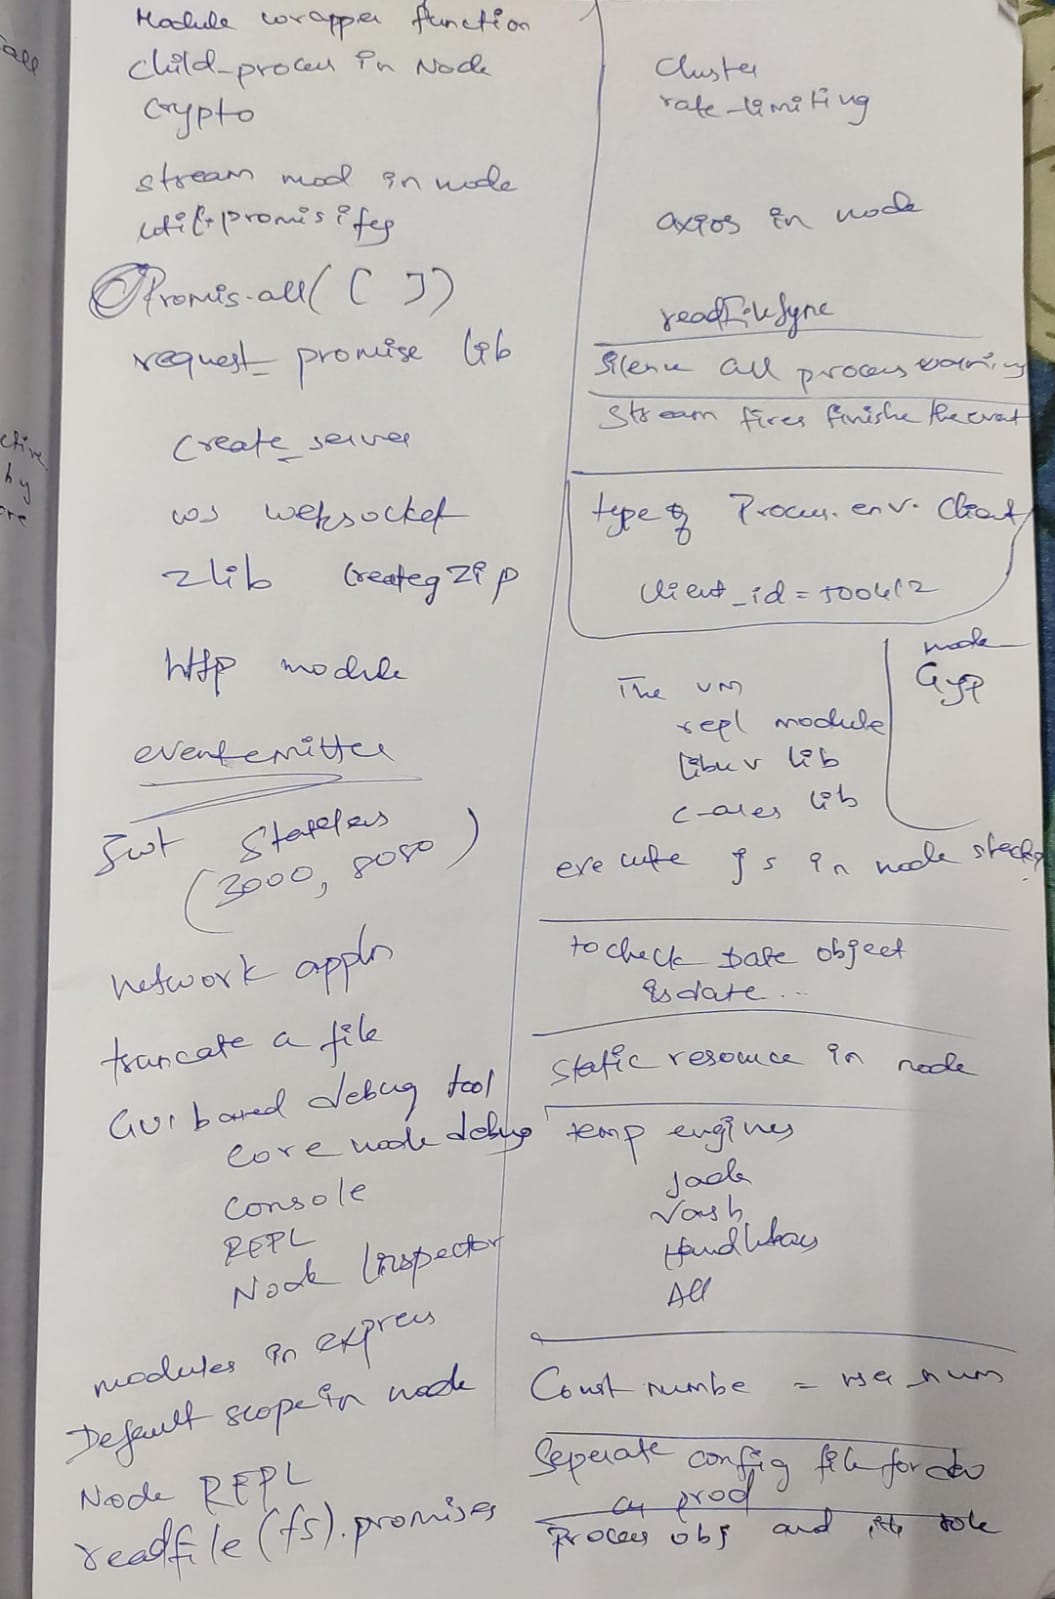 Module wrapper function
child-process in Node
crypto
stream mod in node
util.promisify
Promis.all( [ ] )
request_promise lib
create_server
ws websocket
zlib creategzip
http module
eventemitter
Jwt Stateless
(3000, 8080)
network appln
truncate a file
GUI based debug tool
core node debug
Console
REPL
Node Inspector
modules in express
Default scope in node
Node REPL
readfile(fs).promises
Cluster
rate-limiting
axios in node
readFileSync
Silence all process warnings
Stream fires finishe the event
type of Process.env.Client
Client_id =
node
Gyp
The VM
repl module
libuv lib
c-ares lib
execute js in node
to check Date object
isdate...
Static resource in node
temp engines
Jade
Vash
Handlebars
All
Const numbe = user num
Seperate config file for dev
prod
process obj and its role
all
ctive
by
ore